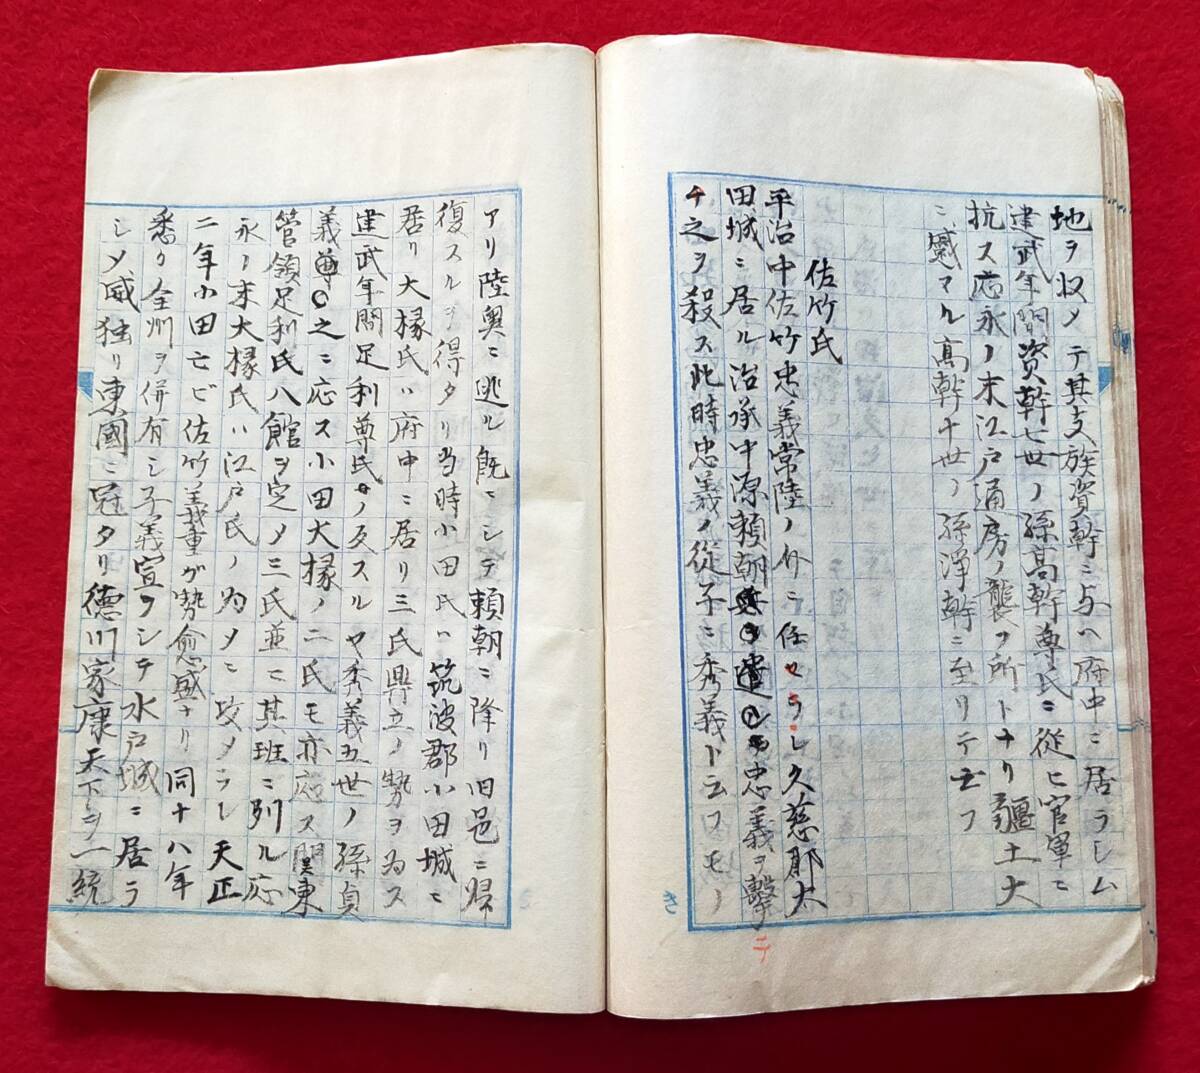 地ヲ収メテ其支族資幹ニ与ヘ府中ニ居ラシム
建武年間資幹七世ノ孫高幹尊氏ニ従ヒ官軍ニ
抗ス応永ノ末江戸通房ノ襲フ所トナリ疆土大
ニ蹙マル高幹十世ノ孫浄幹ニ至リテ亡フ
佐竹氏
平治中佐竹忠義常陸ノ介ニ任セラレ久慈郡太
田城ニ居ル治承中源頼朝忠義ヲ撃
チ之ヲ殺ス此時忠義ノ従子ニ秀義ト云フモノ
アリ陸奥ニ逃ル既ニシテ頼朝ニ降リ旧邑ニ帰
復スルヲ得タリ当時小田氏ハ筑波郡小田城ニ
居リ大掾氏ハ府中ニ居リ三氏興立ノ勢ヲ為ス
建武年間足利尊氏ノ反スルヤ秀義五世ノ孫貞
義之ニ応ス小田大掾ノ二氏モ亦応ス関東
管領足利氏八館ヲ定メ三氏並ニ其班ニ列ル応
永ノ末大掾氏ハ江戸氏ノ為メニ攻メラレ天正
二年小田亡ビ佐竹義重ガ勢愈盛ナリ同十八年
悉ク全州ヲ併有シ子義宣ヲシテ水戸城ニ居ラ
シメ威独リ東國ニ冠タリ徳川家康天下ヲ一統